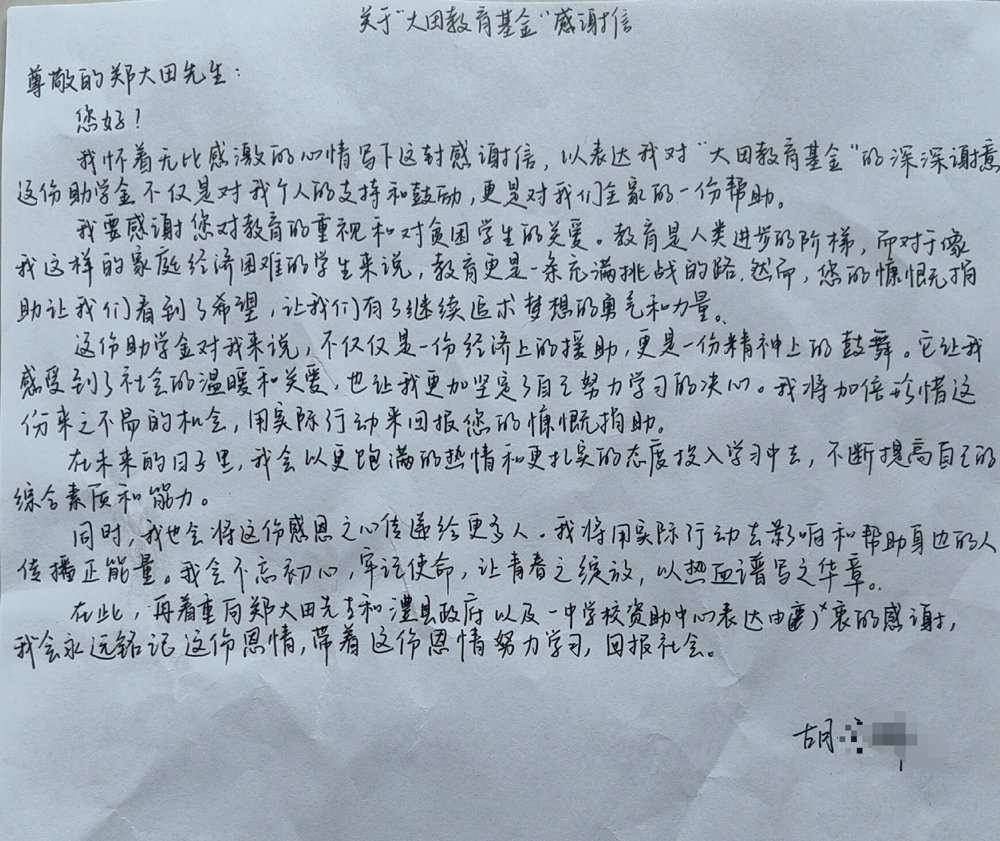 关于“大田教育基金”感谢信
尊敬的郑大田先生:
您好!
我怀着无比感激的心情写下这封感谢信,以表达我对“大田教育基金”的深深谢意
这份助学金不仅是对我个人的支持和鼓励,更是对我们全家的一份帮助。
我要感谢您对教育的重视和对贫困学生的关爱。教育是人类进步的阶梯,而对于像
我这样的家庭经济困难的学生来说,教育更是一条充满挑战的路.然而,您的慷慨无捐
助让我们看到了希望,让我们有了继续追求梦想的勇气和力量。
这份助学金对我来说,不仅仅是一份经济上的援助,更是一份精神上的鼓舞。它让我
感受到了社会的温暖和关爱,也让我更加坚定了自己努力学习的决心。我将加倍珍惜这
份来之不易的机会,用实际行动来回报您的慷慨捐助。
在未来的日子里,我会以更饱满的热情和更扎实的态度投入学习中去,不断提高自己的
综合素质和能力。
同时,我也会将这份感恩之心传递给更多人。我将用实际行动去影响和帮助身边的人
传播正能量。我会不忘初心,牢记使命,让青春之绽放,以热血谱写之华章。
在此,再着重向郑大田先生和澧县政府以及一中学校资助中心表达由衷的感谢,
我会永远铭记这份恩情,带着这份恩情努力学习,回报社会。
胡